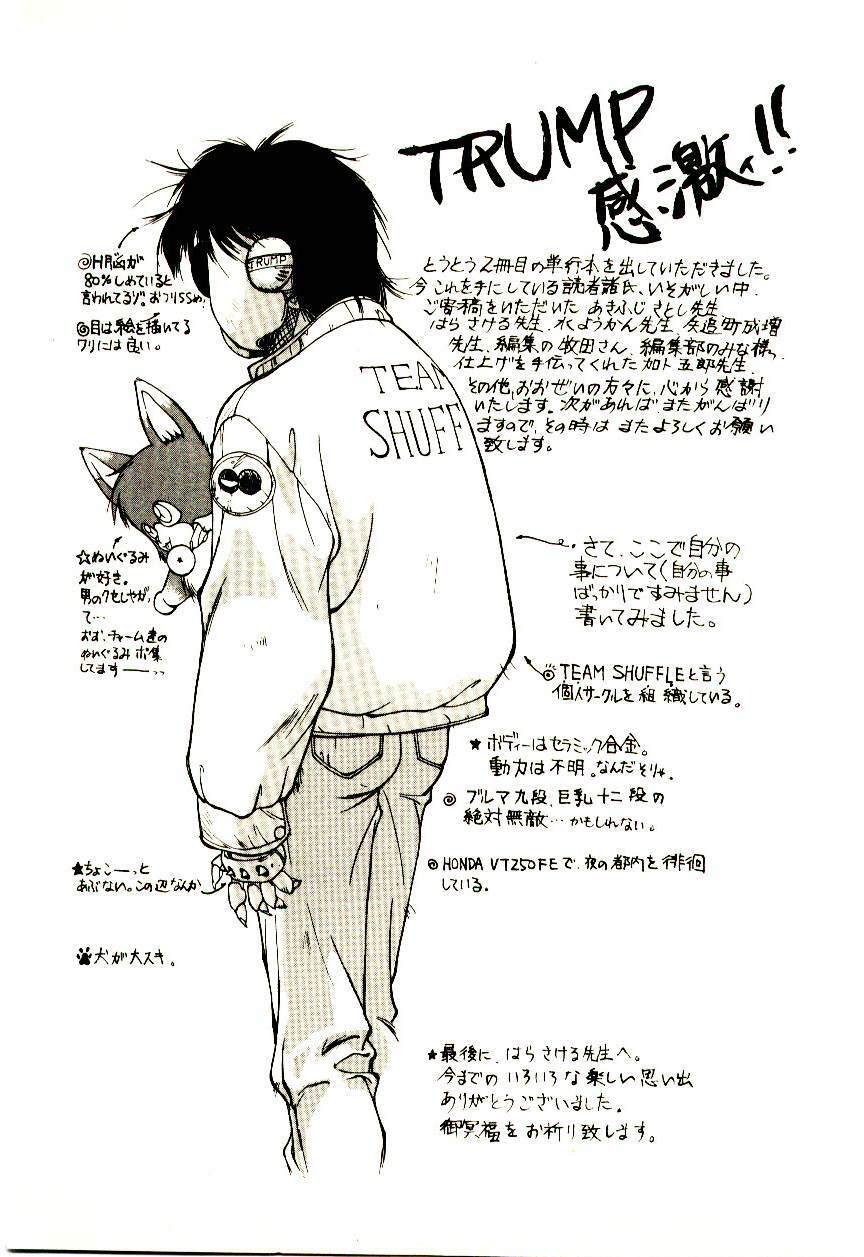 TRUMP
感激ィ!!
とうとう2冊目の単行本を出していただきました。
今これを手にしている読者諸氏、いそがしい中、
ご寄稿をいただいた あきふじさとし先生
はらさける先生、水ようかん先生、
先生、編集の牧田さん、編集部のみな様、
仕上げを手伝ってくれた加ト五郎先生、
その他、おおぜいの方々に、心から感謝
いたします。次があればまたがんばり
ますので、その時は またよろしくお願い
致します。
◎H脳が
80%しめていると
言われてるゾ。
◎目は絵を描いてる
ワリには良い。
TRUMP
TEAM
SHUFF
☆ぬいぐるみ
が好き。
男のクセしやがっ
て…
おお、チャーム達の
ぬいぐるみ ボ集
してます――
・さて、ここで自分の
事について(自分の事
ばっかりですみません)
書いてみました。
◎TEAM SHUFFLEと言う
個人サークルを組織している。
★ボディーはセラミック合金。
動力は不明。なんだそりゃ。
◎ブルマ九段、巨乳十二段の
絶対無敵…かもしれない。
◎HONDA VT250FEで、夜の都内を徘徊
している。
★ちょこーっと
あぶない。この辺なんか
犬が大スキ。
★最後に、はらさける先生へ。
今までのいろいろな楽しい思い出
ありがとうございました。
御冥福をお祈り致します。